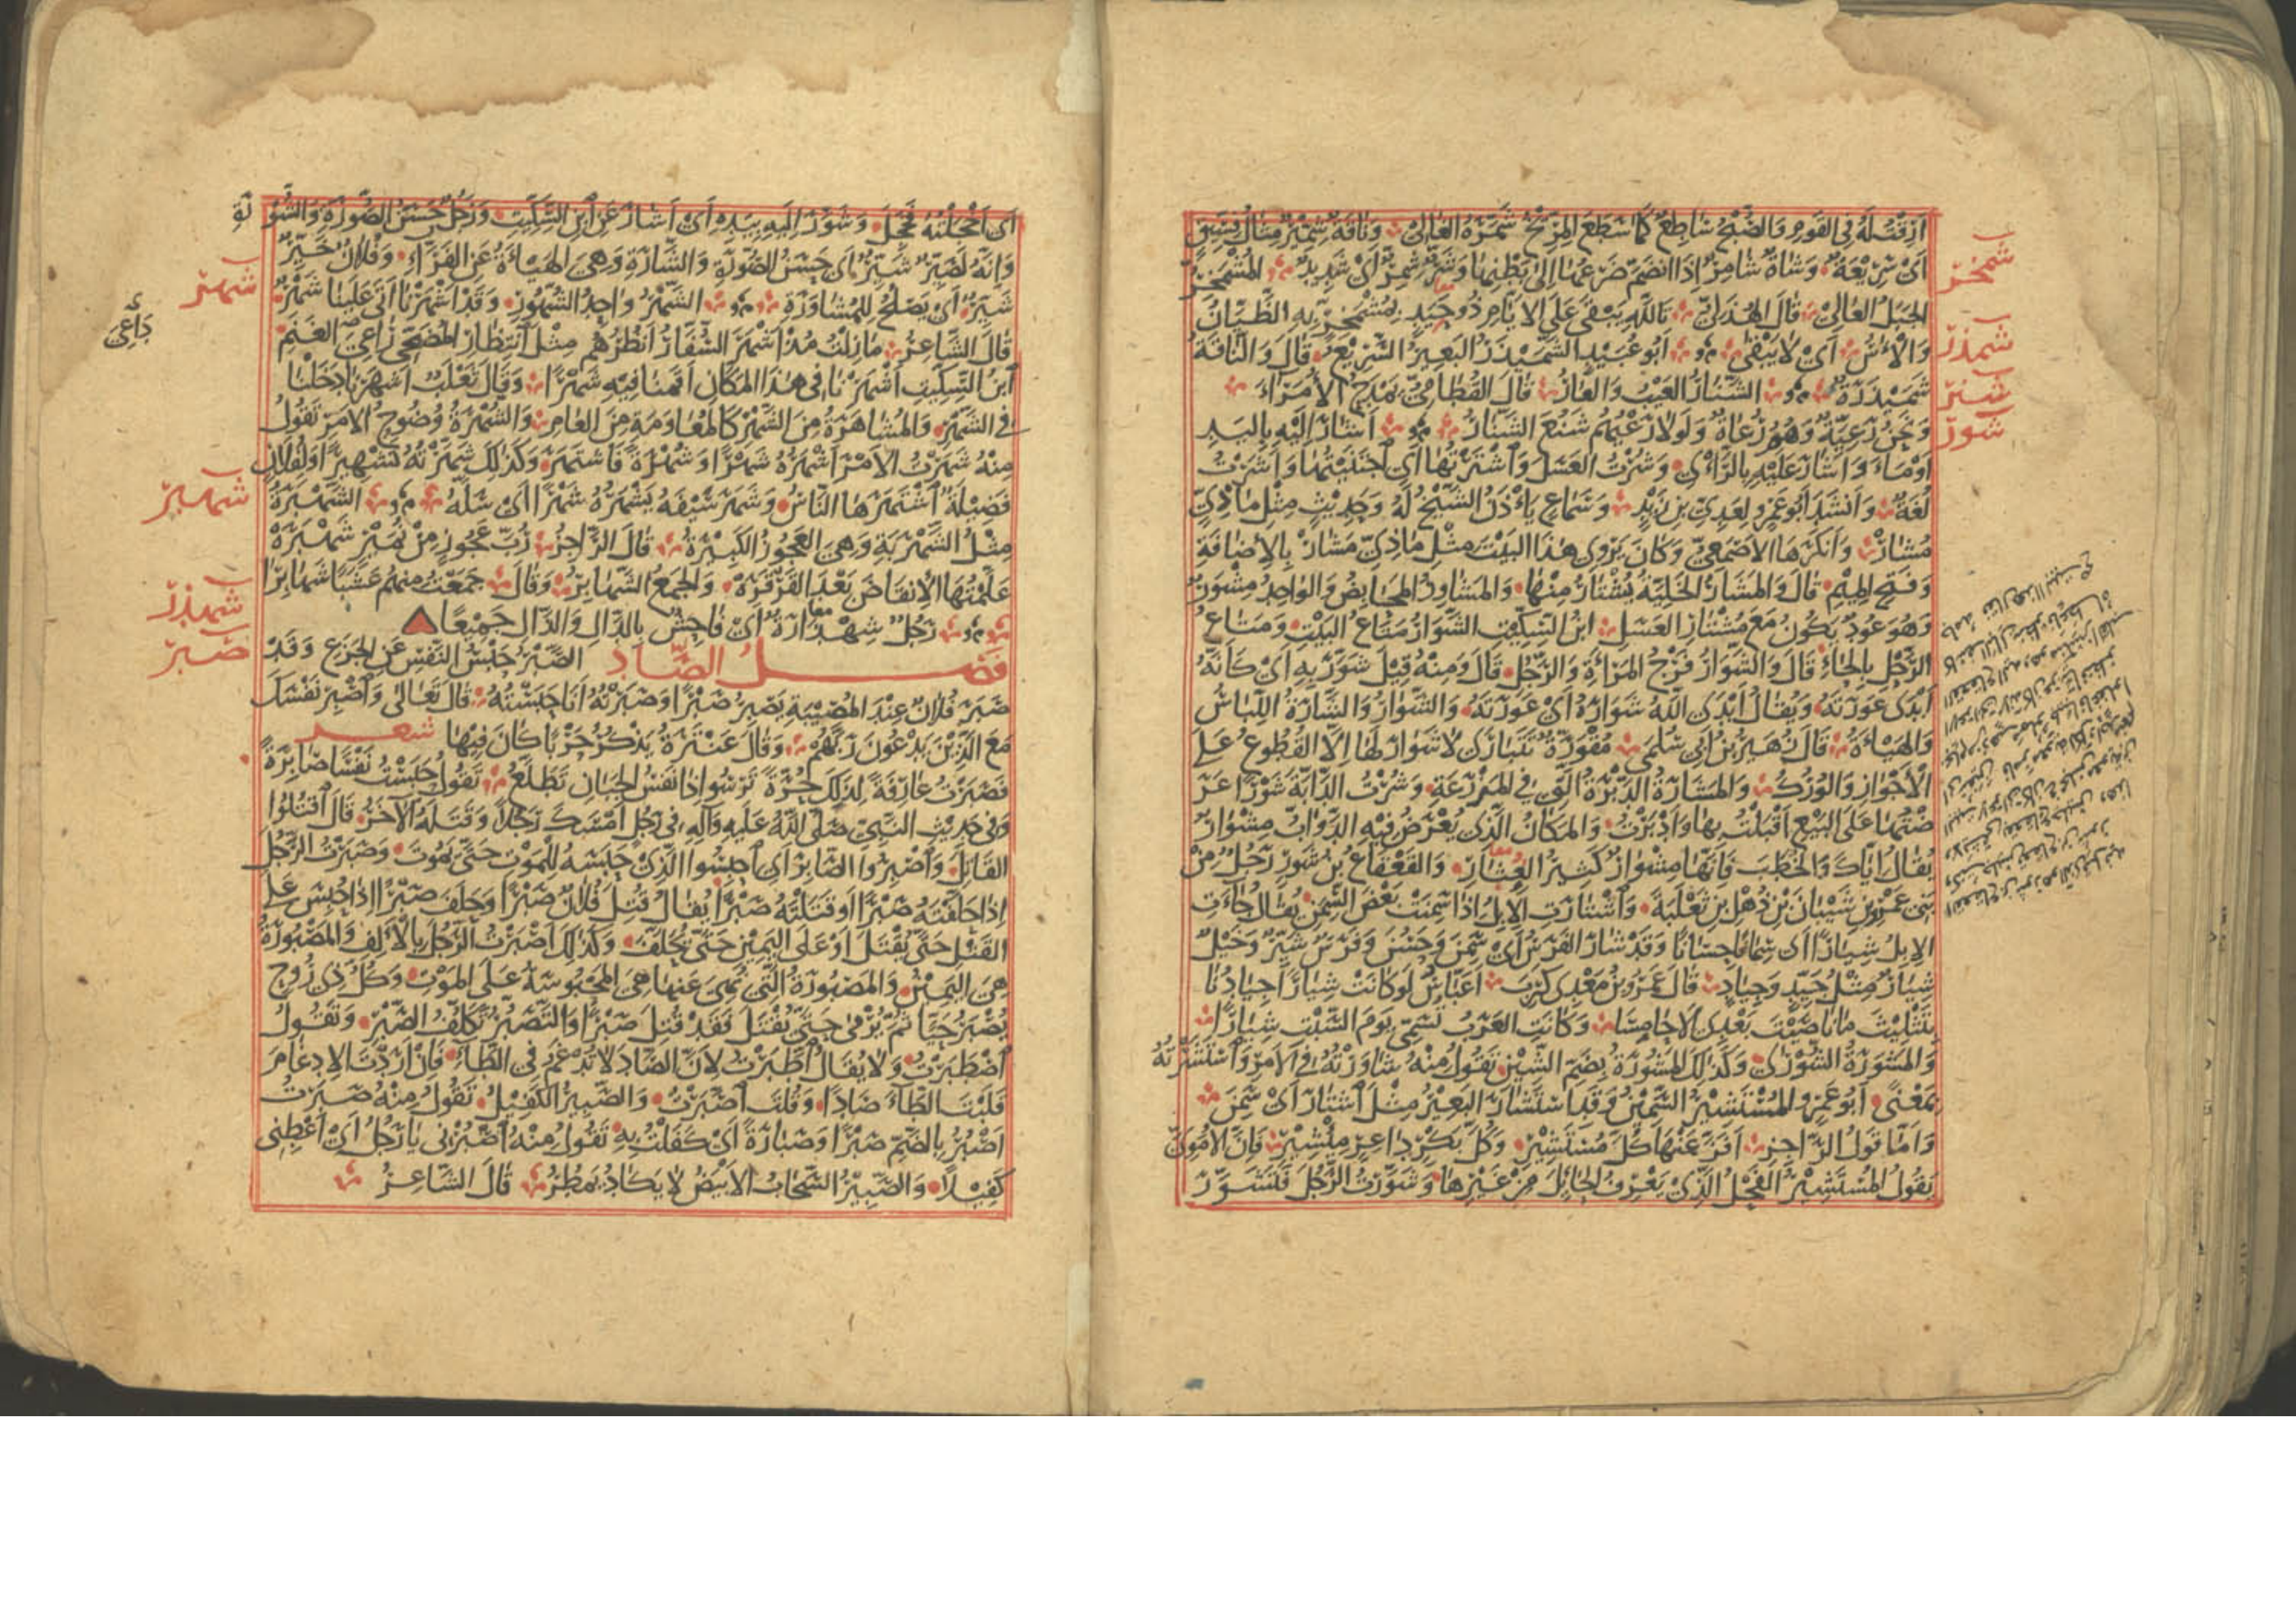 ارقت له في القوم والصبح ساطع كما سطع المريخ شمره الغالي وناقة شمير مثال فسيق
اي سريعة وشاة شامر اذا انضم ضرعها الى بطنها وشر شمر اي شديد المشمخر
الجبل العالي قال الهذلي تالله يبقى على الايام ذو حيد بمشمخر به الظيان
والاس اي لا يبقى ابو عبيد الشميذر البعير السريع قال والناقة
شميذرة الشنار العيب والعار قال القطامي يمدح الامراء
ونحن رعية وهم رعاة ولولا رعيهم شنع الشنار اشار اليه باليد
اومأ واشار عليه بالرأي وشرت العسل واشترتها اي اجتنيتها واشرت
لغة وانشد ابو عمرو لعدي بن زيد وسماع يأذن الشيخ له وحديث مثل ماذي
مشار وانكرها الاصمعي وكان يروي هذا البيت مثل ماذي مشار بالاضافة
وفتح الميم قال والمشار الخلية يشتار منها والمشاور المحابض والواحد مشور
وهو عود يكون مع مشتار العسل ابن السكيت الشوار متاع البيت ومتاع
الرجل بالحاء قال والشوار فرج المراة والرجل قال ومنه قيل شور به اي كانه
ابدى عورته ويقال ابدى الله شواره اي عورته والشوار والشارة اللباس
والهيأة قال زهير بن ابي سلمى مقورة تتبارى لا شوار لها الا القطوع على
الاجواز والورك والمشارة الدبرة التي في المزرعة وشرت الدابة شورا عر
ضتها على البيع اقبلت بها وادبرت والمكان الذي يعرض فيه الدواب مشوار
يقال اياك والخطب فانها مشوار كثير العثار والقعقاع بن شور رجل من
بني عمرو بن شيبان بن ذهل بن ثعلبة واشتارت الابل اذا سمنت بعض السمن يقال جاءت
الابل شيارا اي سمانا حسانا وقد شار الفرس اي سمن وحسن وفرس شير وخيل
شيار مثل جيد وجياد قال عمرو بن معدي كرب اعباس لو كانت شيارا جيادنا
بتثليث ما ناصيت بعدي الاحامسا وكانت العرب تسمي يوم السبت شيارا
والمشورة الشورى وكذلك المشورة بضم الشين تقول منه شاورته في الامر واستشرته
بمعنى ابو عمرو المستشير السمين وقد استشار البعير مثل اشتار اي سمن
واما قول الراجز افز عنها كل مستشير وكل بكر داعر مئشير فان الاموي
يقول المستشير الفحل الذي يعرف الحائل من غيرها وشورت الرجل فتشور
شمخر
شمذر
شنر
شور
اي اخجلته فخجل وشور اليه بيده اي اشار عن ابن السكيت ورجل حسن الصورة والشورة
وانه لصير شير اي حسن الصورة والشارة وهي الهيأة عن الفراء وفلان خير
شير اي يصلح للمشاورة الشهر واحد الشهور وقد اشهرنا اتى علينا شهر
قال الشاعر ما زلت مذ اشهر السفار انظرهم مثل انتظار المضحي راعي الغنم
ابن السكيت اشهرنا في هذا المكان اقمنا فيه شهرا وقال ثعلب اشهرنا دخلنا
في الشهر والمشاهرة من الشهر كالمعاومة من العام والشهرة وضوح الامر تقول
منه شهرت الامر اشهره شهرا وشهرة فاشتهر وكذلك شهرته تشهيرا ولفلان
فضيلة اشتهرها الناس وشهر سيفه يشهره شهرا اي سله الشهبرة
مثل الشهربة وهي العجوز الكبيرة قال الراجز رب عجوز من نمير شهبرة
علمتها الانقاض بعد القرقرة والجمع الشهابر وقال جمعت منهم عشبا شهابرا
رجل شهدارة اي فاحش بالدال والذال جميعا
فصل الصاد الصبر حبس النفس عن الجزع وقد
صبر فلان عند المصيبة يصبر صبرا وصبرته انا حبسته قال تعالى واصبر نفسك
مع الذين يدعون ربهم وقال عنترة يذكر حربا كان فيها شعر
فصبرت عارفة لذلك حرة ترسو اذا نفس الجبان تطلع تقول حبست نفسا صابرة
وفي حديث النبي صلى الله عليه وآله في رجل امسك رجلا وقتله الآخر قال اقتلوا
القاتل واصبروا الصابر اي احبسوا الذي حبسه للموت حتى يموت وصبرت الرجل
اذا حلفته صبرا او قتلته صبرا يقال قتل فلان صبرا وحلف صبرا اذا حبس على
القتل حتى يقتل او على اليمين حتى يحلف وكذلك اصبرت الرجل بالالف والمصبورة
هي اليمين والمصبورة التي نهي عنها هي المحبوسة على الموت وكل ذي روح
يصبر حيا ثم يرمى حتى يقتل فقد قتل صبرا والتصبر تكلف الصبر وتقول
اضطبرت ولا يقال اطبرت لان الصاد لا تدغم في الطاء فان اردت الادغام
قلبت الطاء صادا وقلت اصبرت والصبير الكفيل تقول منه صبرت
اصبر بالضم صبرا وصبارة اي كفلت به تقول منه اصبرني يا رجل اي اعطني
كفيلا والصبير السحاب الابيض لا يكاد يمطر قال الشاعر
شهر
شهبر
شهدر
صبر